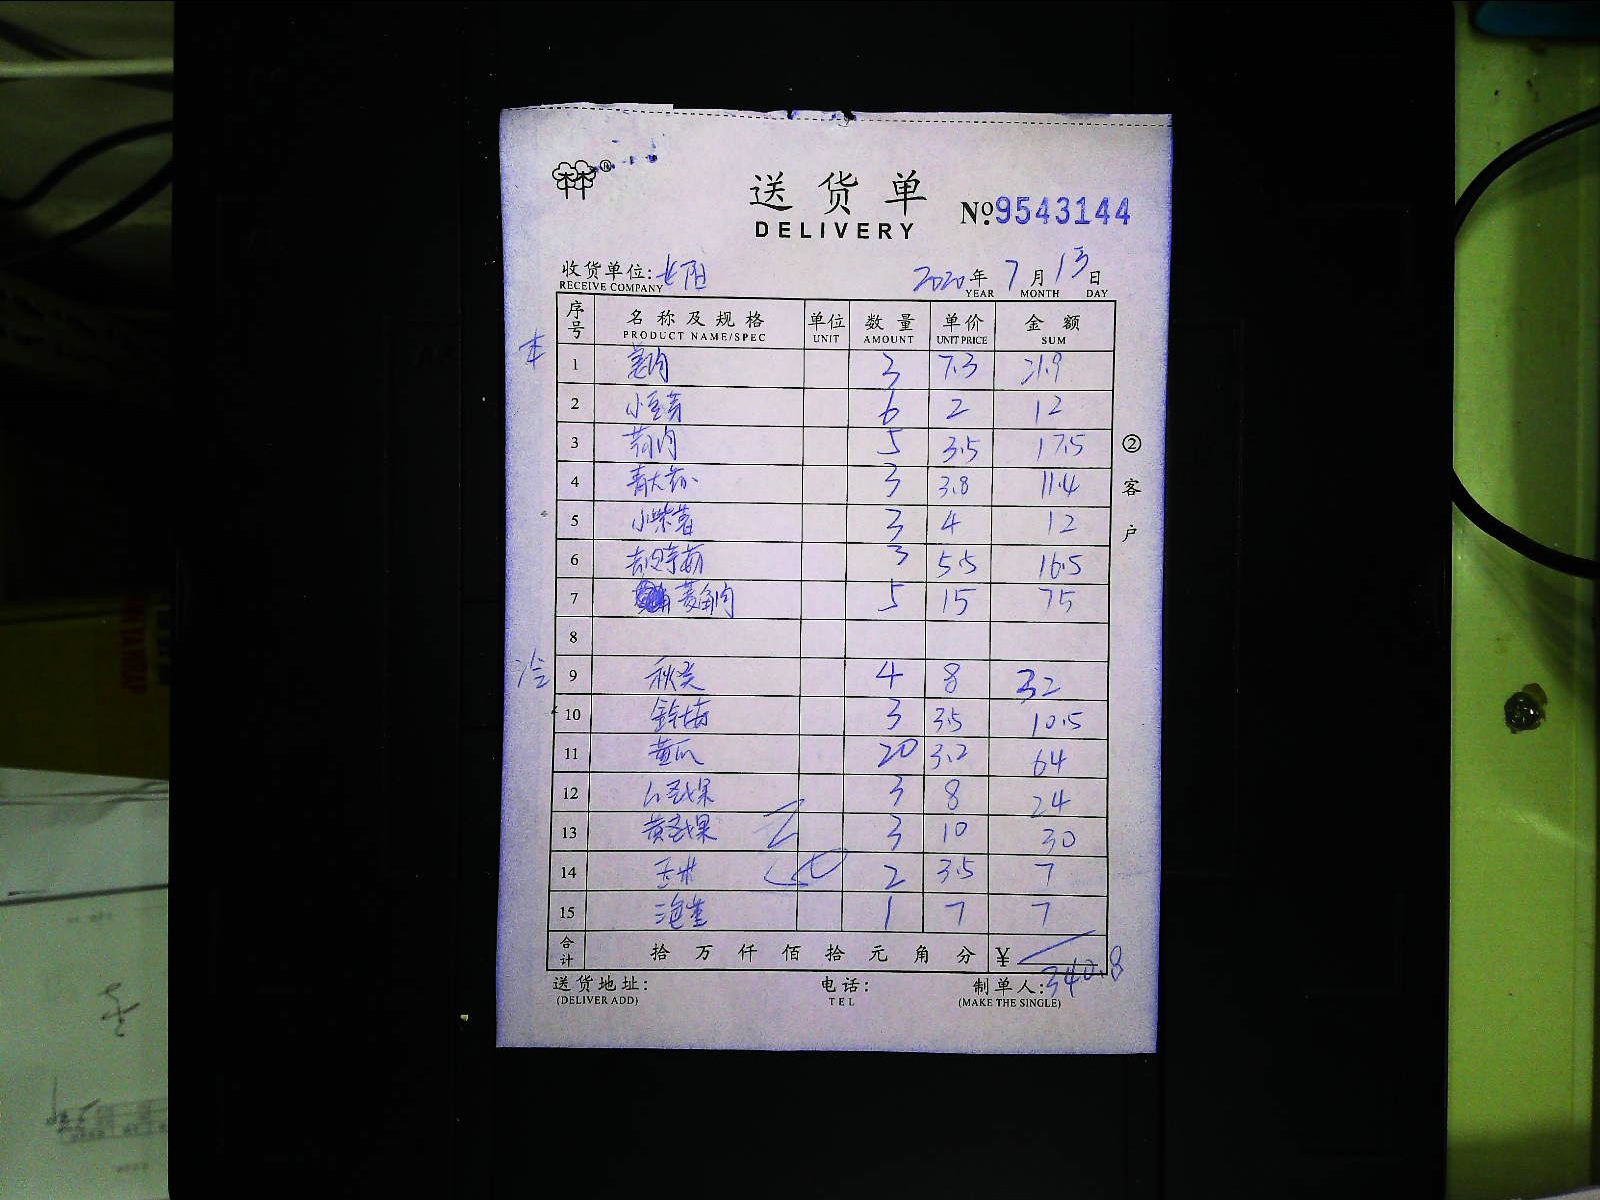 ®
送货单
DELIVERY
№9543144
收货单位:
RECEIVE COMPANY
2020年 7月 13日
YEAR MONTH DAY
序号 名称及规格 单位 数量 单价 金额
PRODUCT NAME/SPEC UNIT AMOUNT UNIT PRICE SUM
1 3 7.3 21.9
2 6 2 12
3 5 3.5 17.5
4 3 3.8 11.4
5 小紫薯 3 4 12
6 3 5.5 16.5
7 菱角肉 5 15 75
8
冷
9 秋葵 4 8 32
10 3 3.5 10.5
11 黄瓜 20 3.2 64
12 3 8 24
13 3 10 30
14 玉米 2 3.5 7
15 1 7 7
合计 拾 万 仟 佰 拾 元 角 分 ¥ 340.8
②客户
送货地址: 电话: 制单人:
(DELIVER ADD) TEL (MAKE THE SINGLE)